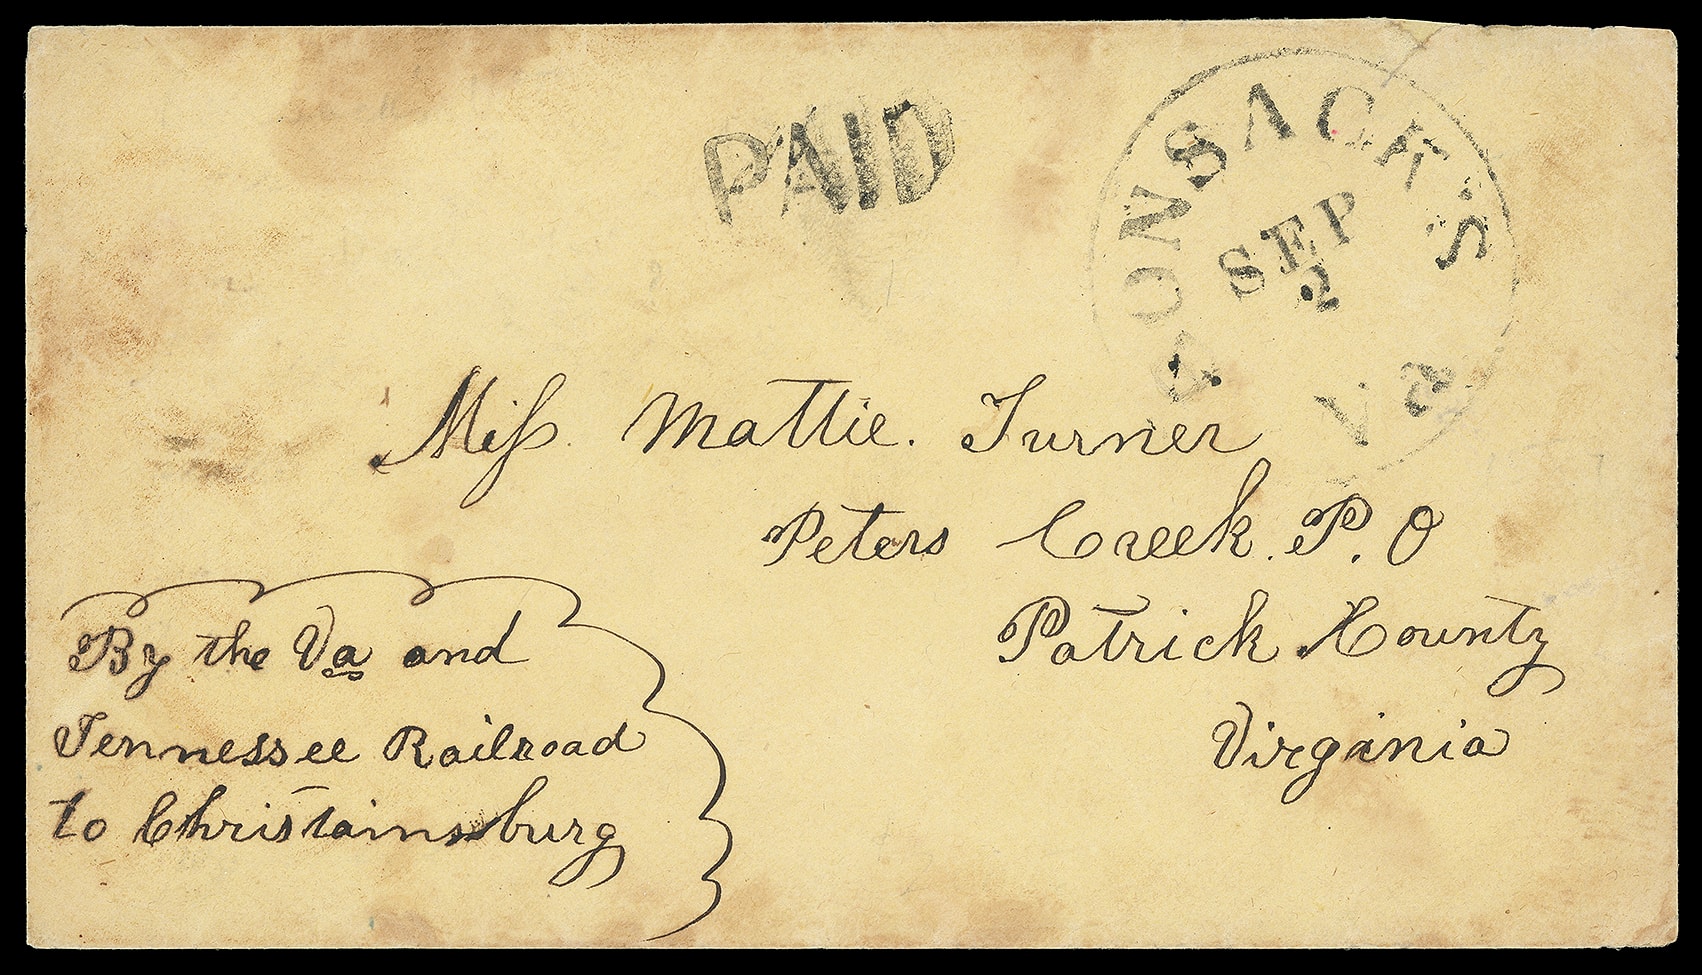 PAID
BONSACK'S
SEP
2
Va
Miss Mattie. Turner
Peters Creek. P. O
Patrick County
Virginia
By the Va and
Tennessee Railroad
to Christainsburg